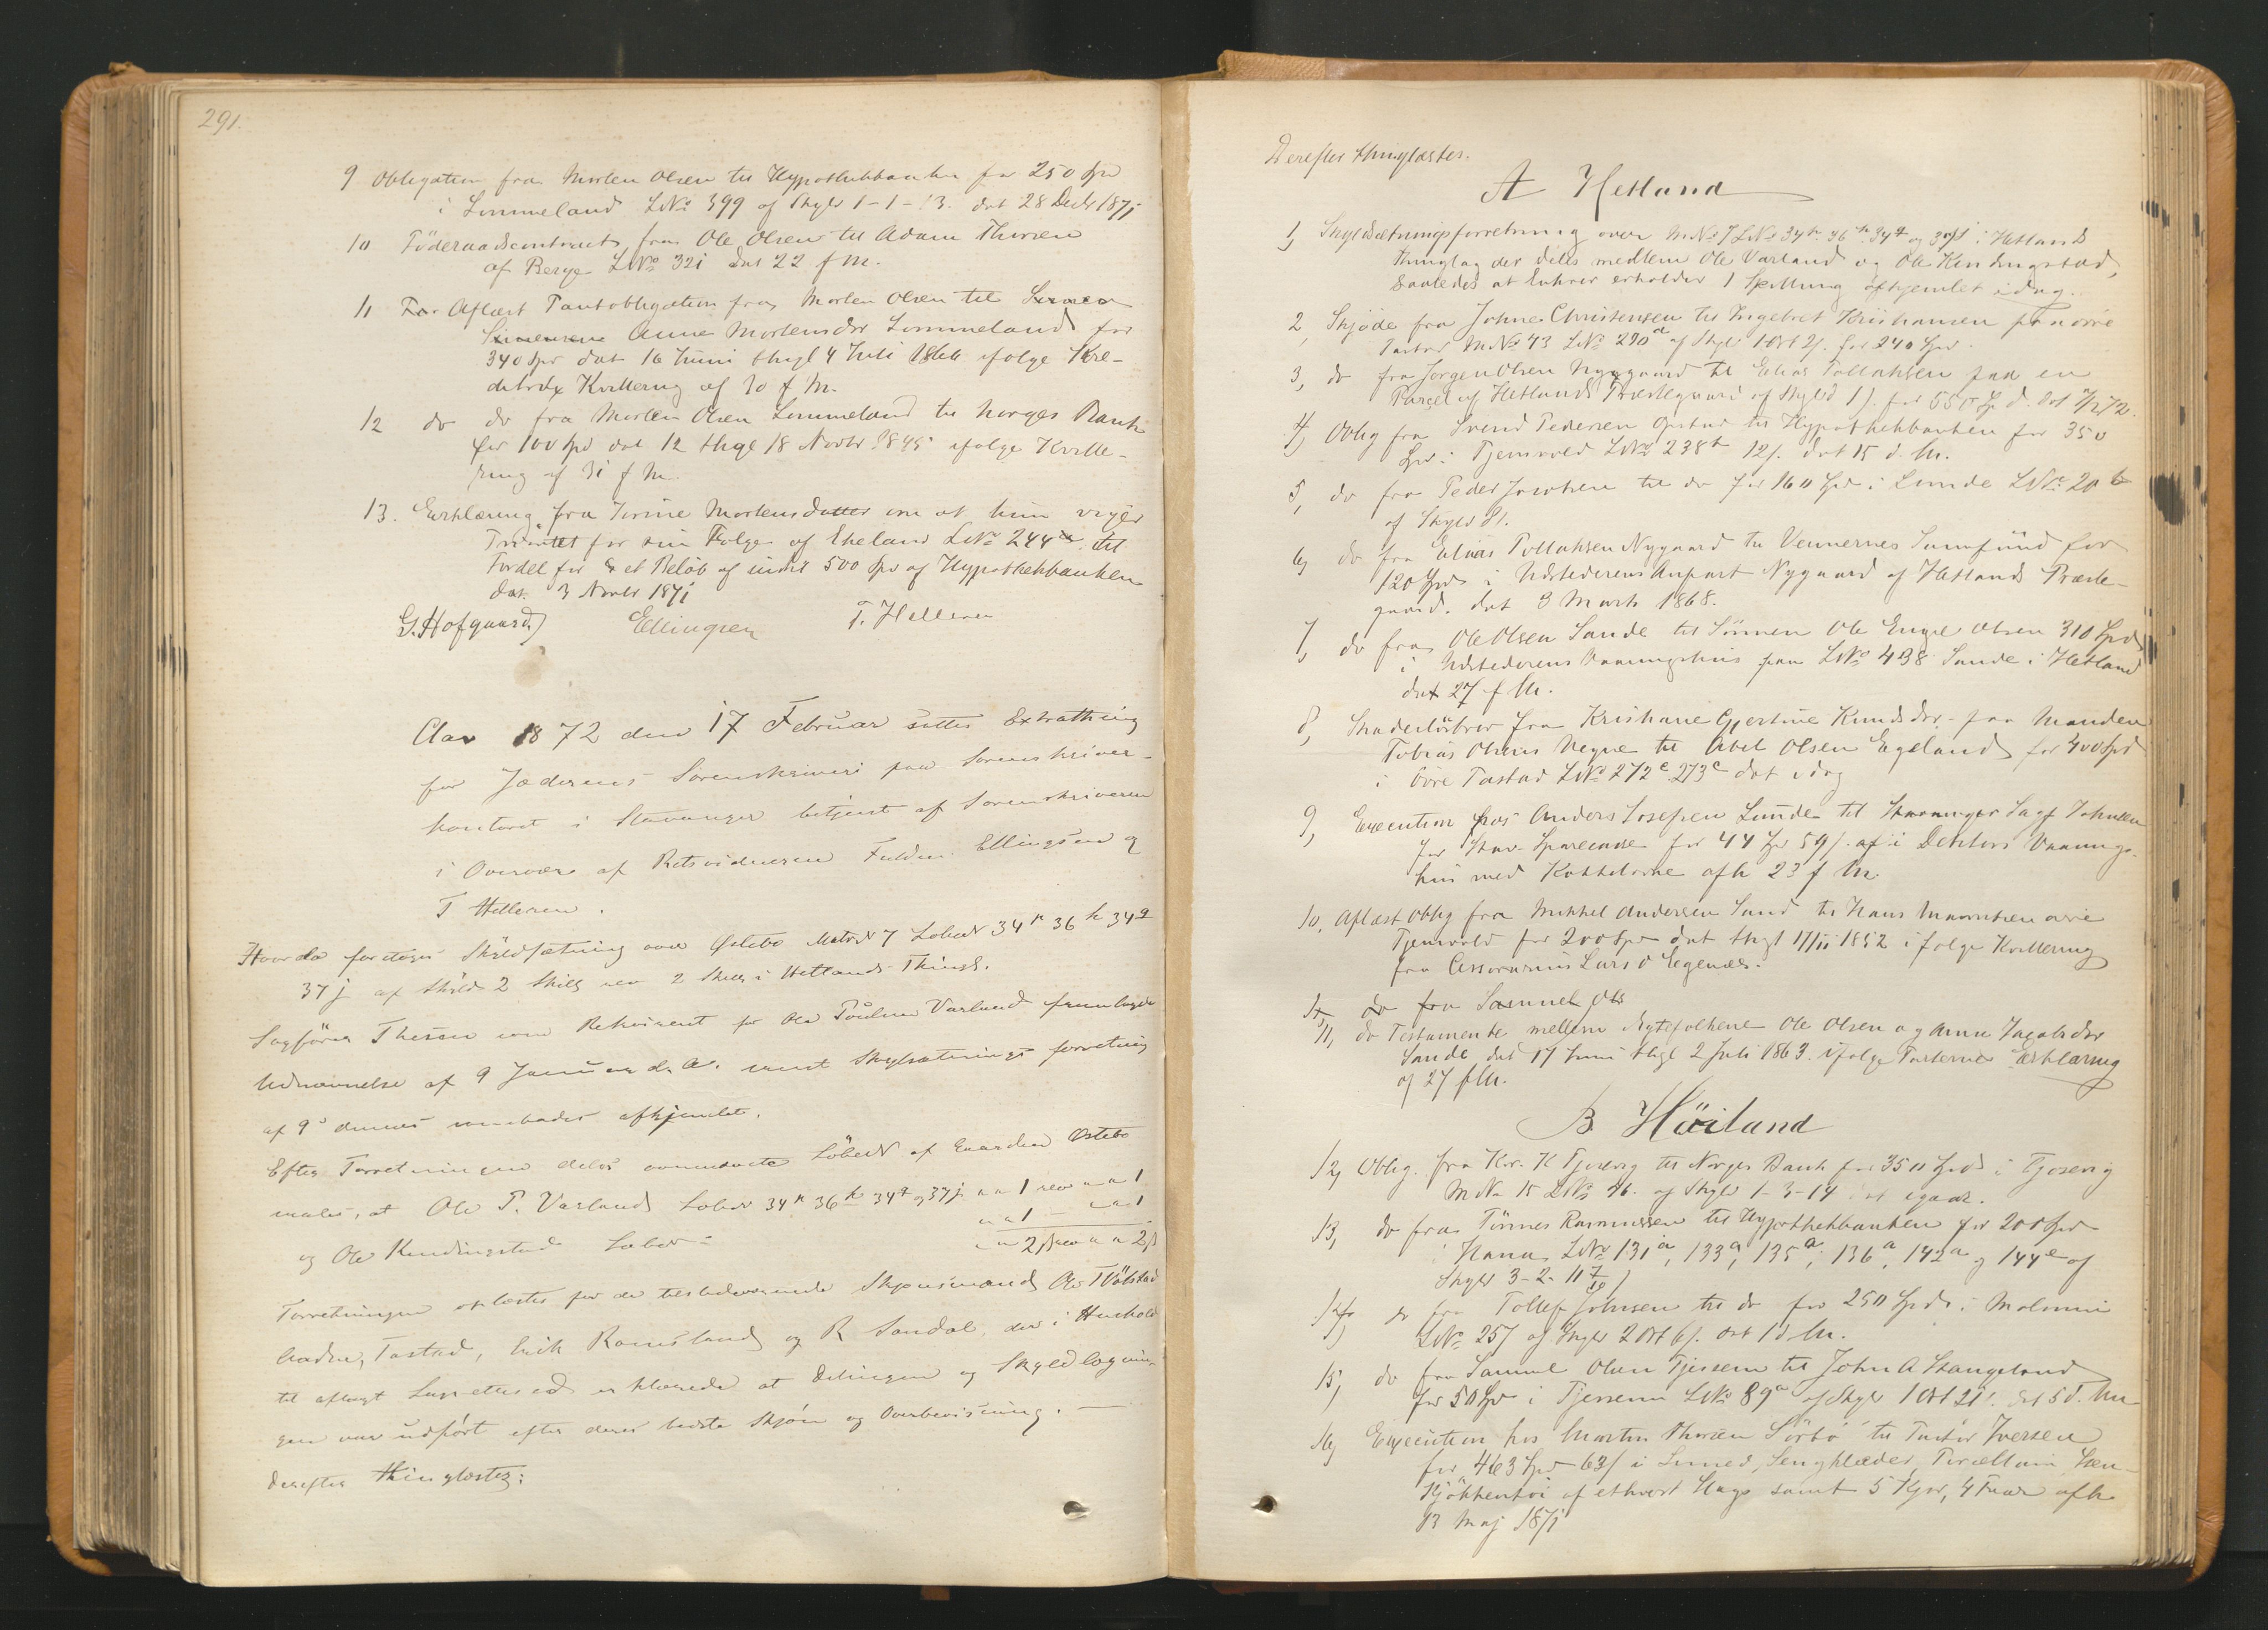 291.
9 Obligation fra Morten Olsen til Hypothekbanken for 250 Spd
i Lommeland LNo 399 af Skyld 1-1-13. dat 28 Decbr 1871
10 Föderaadscontract fra Ole Olsen til Adam Thorsen
af Berge LNo 321 dat 22 f M.
11 Aflæst Pantobligation fra Morten Olsen til
Simensen Anne Mortensdtr Lommeland for
340 Spd dat 16 Juni thgl 4 Juli 1866 ifølge Kre-
ditrix Kvittering af 30 f M.
12 do do fra Morten Olsen Lommeland til Norges Bank
for 100 Spd dat 12 thgl 18 Novbr 1845 ifølge Kvitte-
ring af 31 f M.
13. Erklæring fra Torine Mortensdatter om at hun viger
Prioritet for sin Folge af Eheland LNo 244 til
Fordel for et Beløb af indtil 500 Spd af Hypothekbanken
dat. 3 Novbr 1871
G. Hofgaard Ellingsen T. Helleren
Aar 1872 den 17 Februar sattes Extrathing
for Jæderens Sorenskriveri paa Sorenskriver-
kontoret i Stavanger betjent af Sorenskriveren
i Overvær af Retsvidnerne Fuldm. Ellingsen og
T Helleren.
Hvorda foretoges Skyldsætning over Østebø Matr No 7 Løbe No 34k 36h 34q
37j af Skyld 2 Skill rev 2 Skill i Hetlands Thingl.
Sagfører Thesen som Rekvirent for Ole Poulsen Varland fremlagde
Udnævnelse af 9 Januar d. A. samt Skyldsætnings forretning
af 9de dennes afhjemlet.
Efter Forretningen deles ommeldte LøbeNo af Gaarden Østebø
saaledes, at Ole P. Varland LøbeNo 34k 36h 34q og 37j " " 1 rev " " 1
og Ole Kindingstad LøbeNo " " 1 " " 1
" " 2 β rev " " 2 β
Forretningen oplæstes for de tilstedeværende Skjønsmænd Ole Tvölstad
Tastad, Erik Ramsland og R Sandal, der i Henhold
til aflagt Lagretteseed erklærede at Delingen og Skyldlægnin-
gen var udført efter deres bedste Skjøn og Overbevisning. —
derefter thinglæstes:
Derefter thinglæstes.
A Hetland
1, Skyldsætningsforretning over MNo 7 LNo 34k 36h 34q og 37j i Hetlands
Thinglag der deles mellem Ole Varland og Ole Kindingstad,
saaledes at enhver erholder 1 Skilling afhjemlet idag.
2, Skjøde fra Johne Christensen til Ingebret Kristiansen paa øvre
Tastad MNo 43 LNo 270d af Skyld 1 Ort 2 β. for 240 Spd.
3, do fra Jørgen Olsen Nygaard til Elias Tollaksen paa en
Parcel af Hetlands Præstegaard af Skyld 1 β. for 550 Spd. dat
4, Oblig fra Svend Pedersen til Hypothekbanken for 350
Spd i Tjensvold LNo 238 12 β. dat 15 d. M.
5, do fra Peder Jacobsen til do for 160 Spd i Lunde LNo 20b
af Skyld 8 β.
6, do fra Elias Tollaksen Nygaard til Vennernes Samfund for
120 Spd i Udstederens Anpart Nygaard af Hetlands Præste-
gaard. dat 3 Marts 1868.
7, do fra Ole Olsen Sande til Sønnen Ole Engel Olsen 310 Spd
i Udstederens Vaaningshus paa LNo 438 Sande i Hetland
dat 27 f M.
8, Skadesløsbrev fra Kristiane Gjertine Knudsdtr paa Manden
Tobias Olsens Vegne til Abel Olsen Egeland for 400 Spd
i øvre Tastad LNo 272c 273c dat idag
9, Execution hos Anders Josefsen Lunde til Stavanger Sagf Johnsen
for Stav. Sparecasse for 44 Spd 59 β. af i Debitors Vaanings-
hus med afh 23 f M.
10, Aflæst Oblig fra Mikkel Andersen Sund til Hans
Tjensvold for 200 Spd dat thgl 17/11 1852 i følge Kvittering
fra Cessionarius Lars O Egenæs.
11, do fra Samuel Ols
11, do Testamente mellem Ægtefolkene Ole Olsen og Anne Jacobsdtr
Sande dat 17 Juni thgl 2 Juli 1863. ifølge Parternes Erklæring
af 27 f M.
B. Höiland
12, Oblig. fra Kr. K Tjosevig til Norges Bank for 350 Spd i Tjosevig
MNo 15 LNo 46. af Skyld 1-3-14 dat igaar.
13, do fra Tönnes Rasmussen til Hypothekbanken for 200 Spd
i Hana LNo 131a, 133a, 135a, 136a, 142a og 144e af
Skyld 3-2-11 7/10 β
14, do fra Tollef Johnsen til do for 250 Spd i Malmin
LNo 257 af Skyld 2 Ort 6 β. dat 1 d M.
15, do fra Samuel Olsen Tjessem til John A Stangeland
for 50 Spd i Tjessem LNo 89a af Skyld 1 Ort 21 β. dat 5 d. M.
16, Execution hos Morten Thorsen Sörbö til Tostør Iversen
for 463 Spd 63 β i Linned, Sengklæder, Porcellain,
Kjøkkentøi af ethvert Slags samt 5 Kjør, 4 Faar afh.
13 Maj 1871